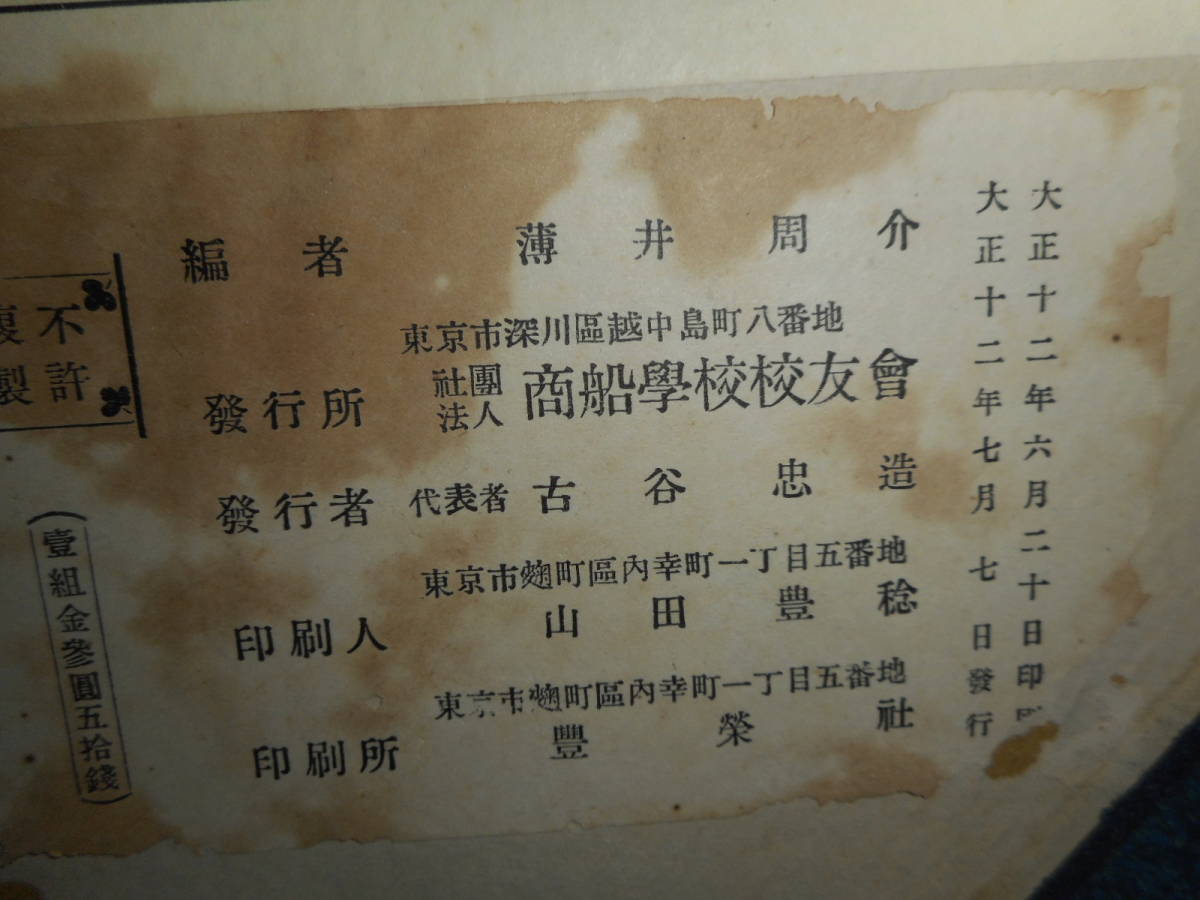 大正十二年六月二十日印
大正十二年七月七日發行
編者 薄井周介
東京市深川區越中島町八番地
發行所 社團法人 商船學校校友會
發行者 代表者 古谷忠造
東京市麹町區內幸町一丁目五番地
印刷人 山田豊稔
東京市麹町區內幸町一丁目五番地
印刷所 豐榮社
不許
複製
(壹組金參圓五拾錢)